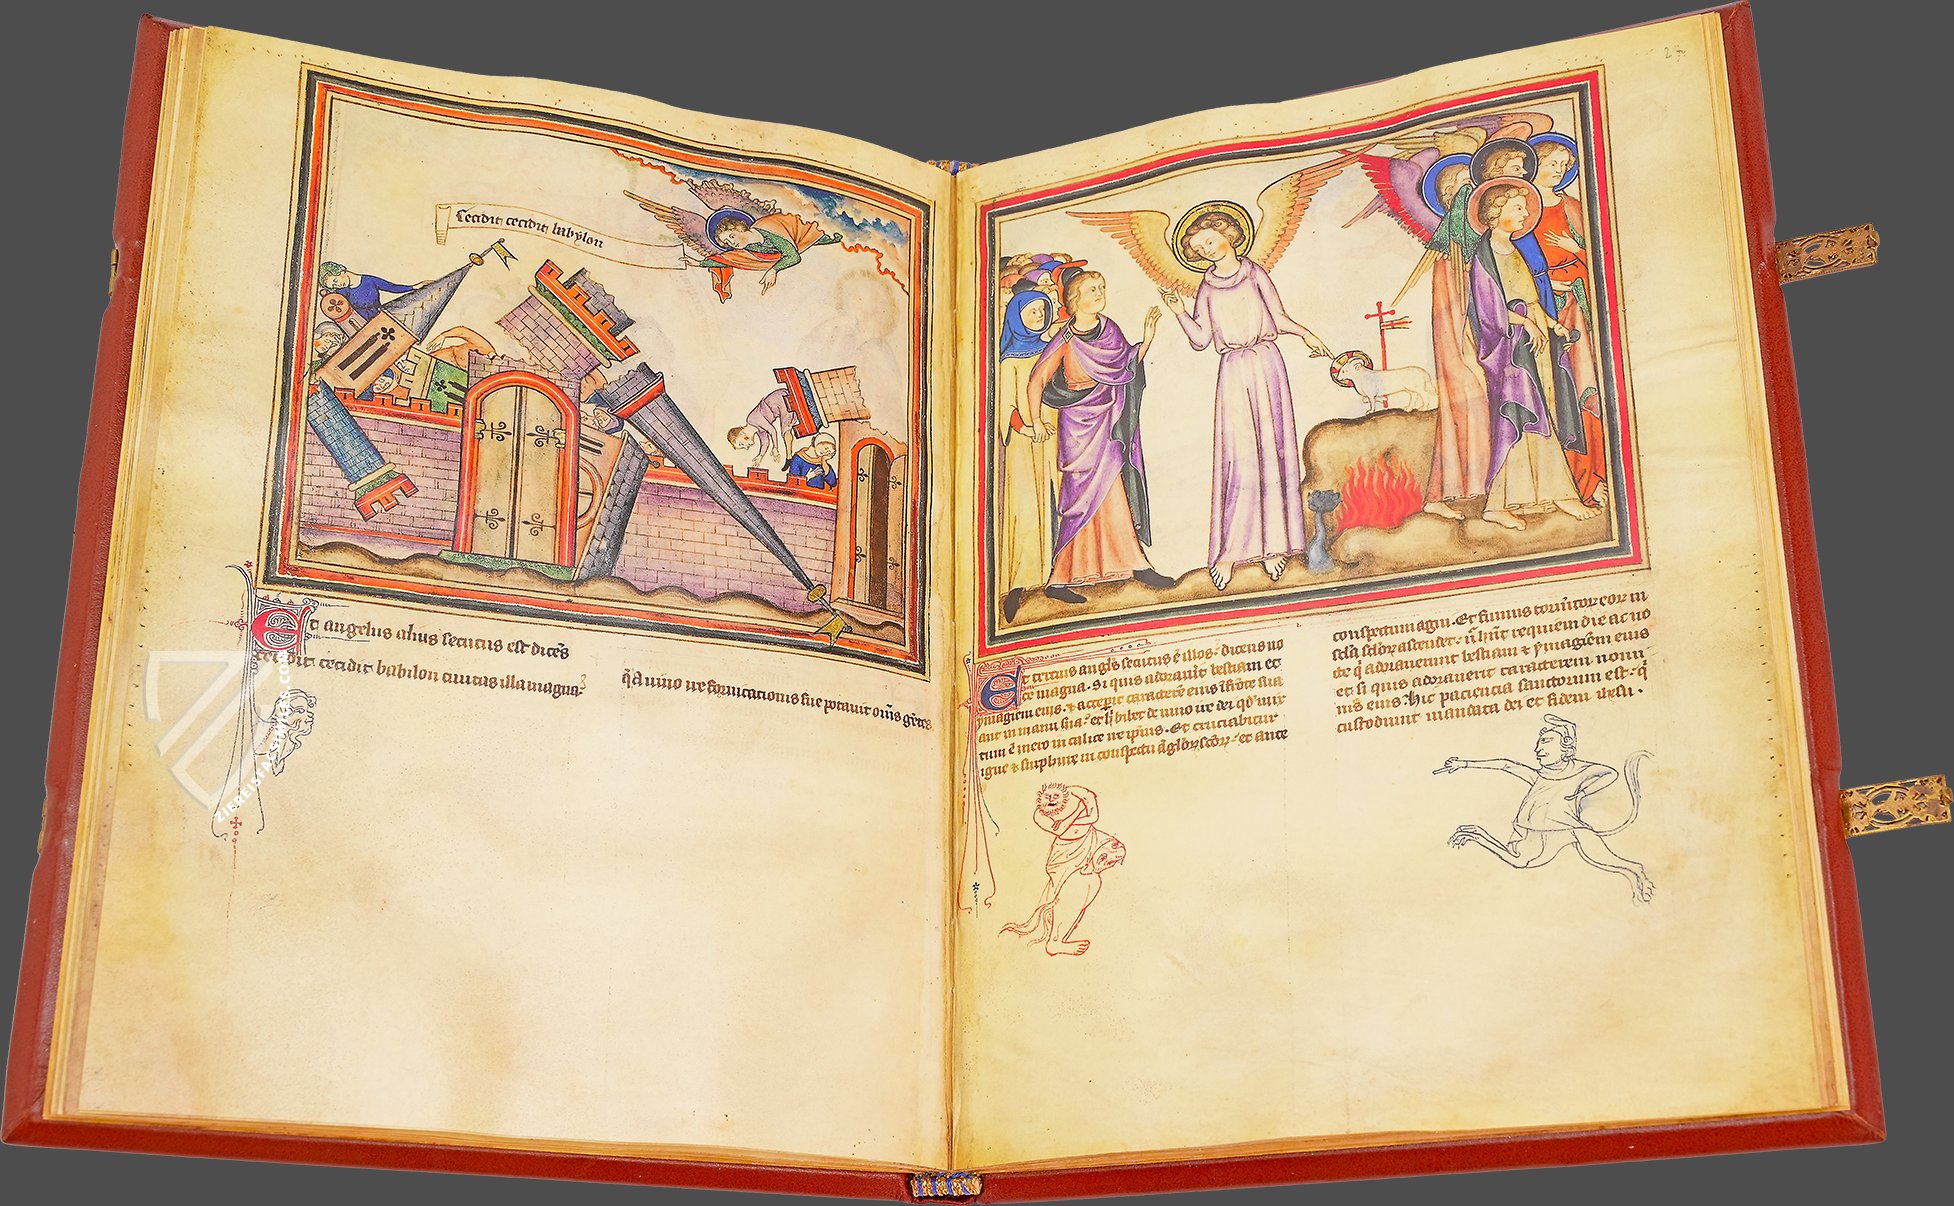 Cecidit cecidit babylon
Et angelus alius secutus est dicēs
cecidit cecidit babilon ciuitas illa magna
q̄ a uino ire fornicationis sue potauit om̄s gētes
27
Et tercius angl̄s secutus ē illos dicens uo
ce magna. Si quis adorauit bestiam et
ymaginem eius. & acceperit caracterē eius ī fronte sua
aut in manu sua et bibet de uino ire dei qd̓ mix
tum ē mero in calice ire ipius. Et cruciabitur
igne & sulphure in conspectu āglor̄ scōr̄ et ante
conspectum agni. Et fumus tormītor eor in
scl̄a sclor̄ ascendet n̄ hn̄t requiem die ac no
cte q̄ adorauerunt bestiam & ymaginem eius
et si quis adorauerit caracterem nomi
nis eius. Hic paciencia sanctorum est q̄
custodiunt mandata dei et fidem ihesu.
ZIEREIS FACSIMILES.COM